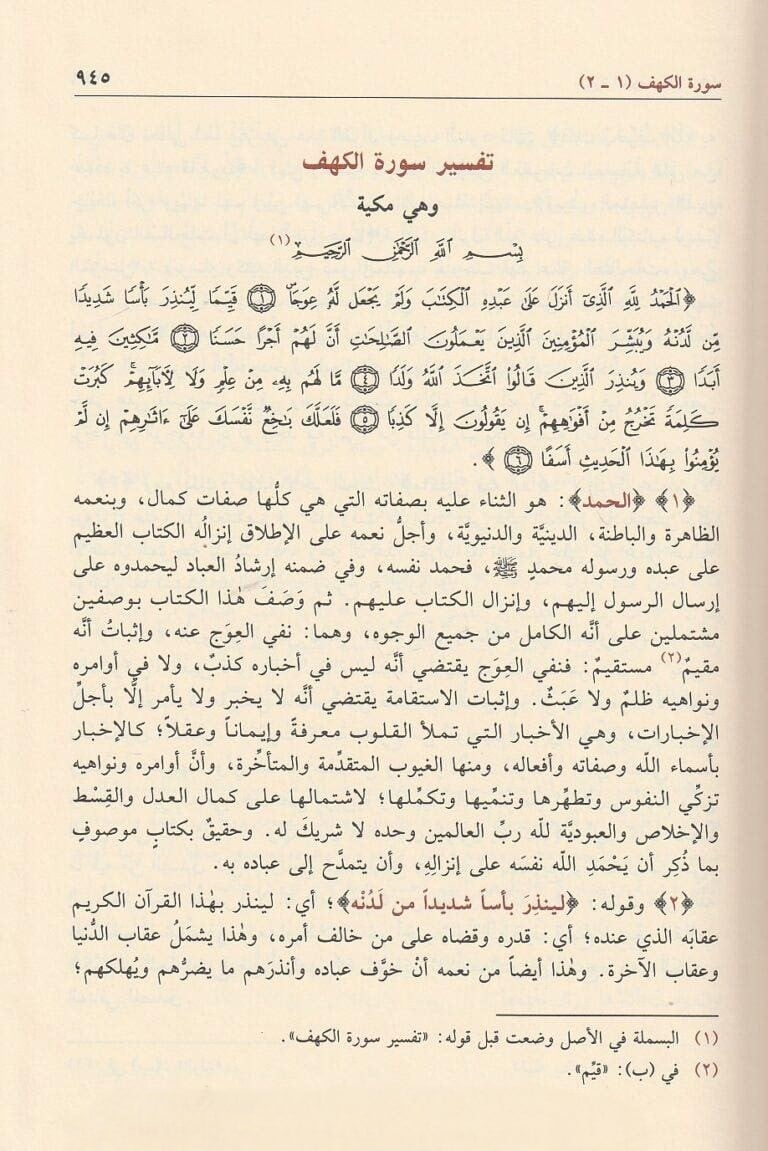 سورة الكهف (١ ـ ٢)
٩٤٥
تفسير سورة الكهف
وهي مكية
بِسْمِ ٱللَّهِ ٱلرَّحْمَٰنِ ٱلرَّحِيمِ (١)
﴿ٱلْحَمْدُ لِلَّهِ ٱلَّذِىٓ أَنزَلَ عَلَىٰ عَبْدِهِ ٱلْكِتَٰبَ وَلَمْ يَجْعَل لَّهُۥ عِوَجَا ۜ ﴿١﴾ قَيِّمًا لِّيُنذِرَ بَأْسًا شَدِيدًا
مِّن لَّدُنْهُ وَيُبَشِّرَ ٱلْمُؤْمِنِينَ ٱلَّذِينَ يَعْمَلُونَ ٱلصَّٰلِحَٰتِ أَنَّ لَهُمْ أَجْرًا حَسَنًا ﴿٢﴾ مَّٰكِثِينَ فِيهِ
أَبَدًا ﴿٣﴾ وَيُنذِرَ ٱلَّذِينَ قَالُوا۟ ٱتَّخَذَ ٱللَّهُ وَلَدًا ﴿٤﴾ مَّا لَهُم بِهِۦ مِنْ عِلْمٍ وَلَا لِـَٔابَآئِهِمْ ۚ كَبُرَتْ
كَلِمَةً تَخْرُجُ مِنْ أَفْوَٰهِهِمْ ۚ إِن يَقُولُونَ إِلَّا كَذِبًا ﴿٥﴾ فَلَعَلَّكَ بَٰخِعٌ نَّفْسَكَ عَلَىٰٓ ءَاثَٰرِهِمْ إِن لَّمْ
يُؤْمِنُوا۟ بِهَٰذَا ٱلْحَدِيثِ أَسَفًا ﴿٦﴾﴾.
﴿١﴾ ﴿الحمد﴾: هو الثناء عليه بصفاته التي هي كلُّها صفات كمال، وبنعمه
الظاهرة والباطنة، الدينيَّة والدنيويَّة، وأجلُّ نعمه على الإطلاق إنزالُه الكتاب العظيم
على عبده ورسوله محمدٍ ﷺ، فحمد نفسه، وفي ضمنه إرشادُ العباد ليحمدوه على
إرسال الرسول إليهم، وإنزال الكتاب عليهم. ثم وَصَفَ هٰذا الكتاب بوصفين
مشتملين على أنَّه الكامل من جميع الوجوه، وهما: نفي العِوَج عنه، وإثباتُ أنَّه
مقيمٌ(٢) مستقيمٌ: فنفي العِوَج يقتضي أنَّه ليس في أخباره كذبٌ، ولا في أوامره
ونواهيه ظلمٌ ولا عَبَثٌ. وإثبات الاستقامة يقتضي أنَّه لا يخبر ولا يأمر إلَّا بأجلِّ
الإخبارات، وهي الأخبار التي تملأ القلوب معرفةً وإيماناً وعقلاً؛ كالإخبار
بأسماء اللّه وصفاته وأفعاله، ومنها الغيوب المتقدِّمة والمتأخِّرة، وأنَّ أوامره ونواهيه
تزكِّي النفوس وتطهِّرها وتنمِّيها وتكمِّلها؛ لاشتمالها على كمال العدل والقِسْط
والإخلاص والعبوديَّة للّه ربِّ العالمين وحده لا شريكَ له. وحقيقٌ بكتابٍ موصوفٍ
بما ذُكِر أن يَحْمَدِ اللّه نفسَه على إنزالِهِ، وأن يتمدَّح إلى عباده به.
﴿٢﴾ وقوله: ﴿لينذِرَ بأساً شديداً من لَدُنْه﴾؛ أي: لينذر بهٰذا القرآن الكريم
عقابَه الذي عنده؛ أي: قدره وقضاه على من خالف أمره، وهٰذا يشمَلُ عقاب الدُّنيا
وعقاب الآخرة. وهٰذا أيضاً من نعمه أنْ خوَّف عباده وأنذرَهم ما يضرُّهم ويُهلكهم؛
(١) البسملة في الأصل وضعت قبل قوله: «تفسير سورة الكهف».
(٢) في (ب): «قيِّم».